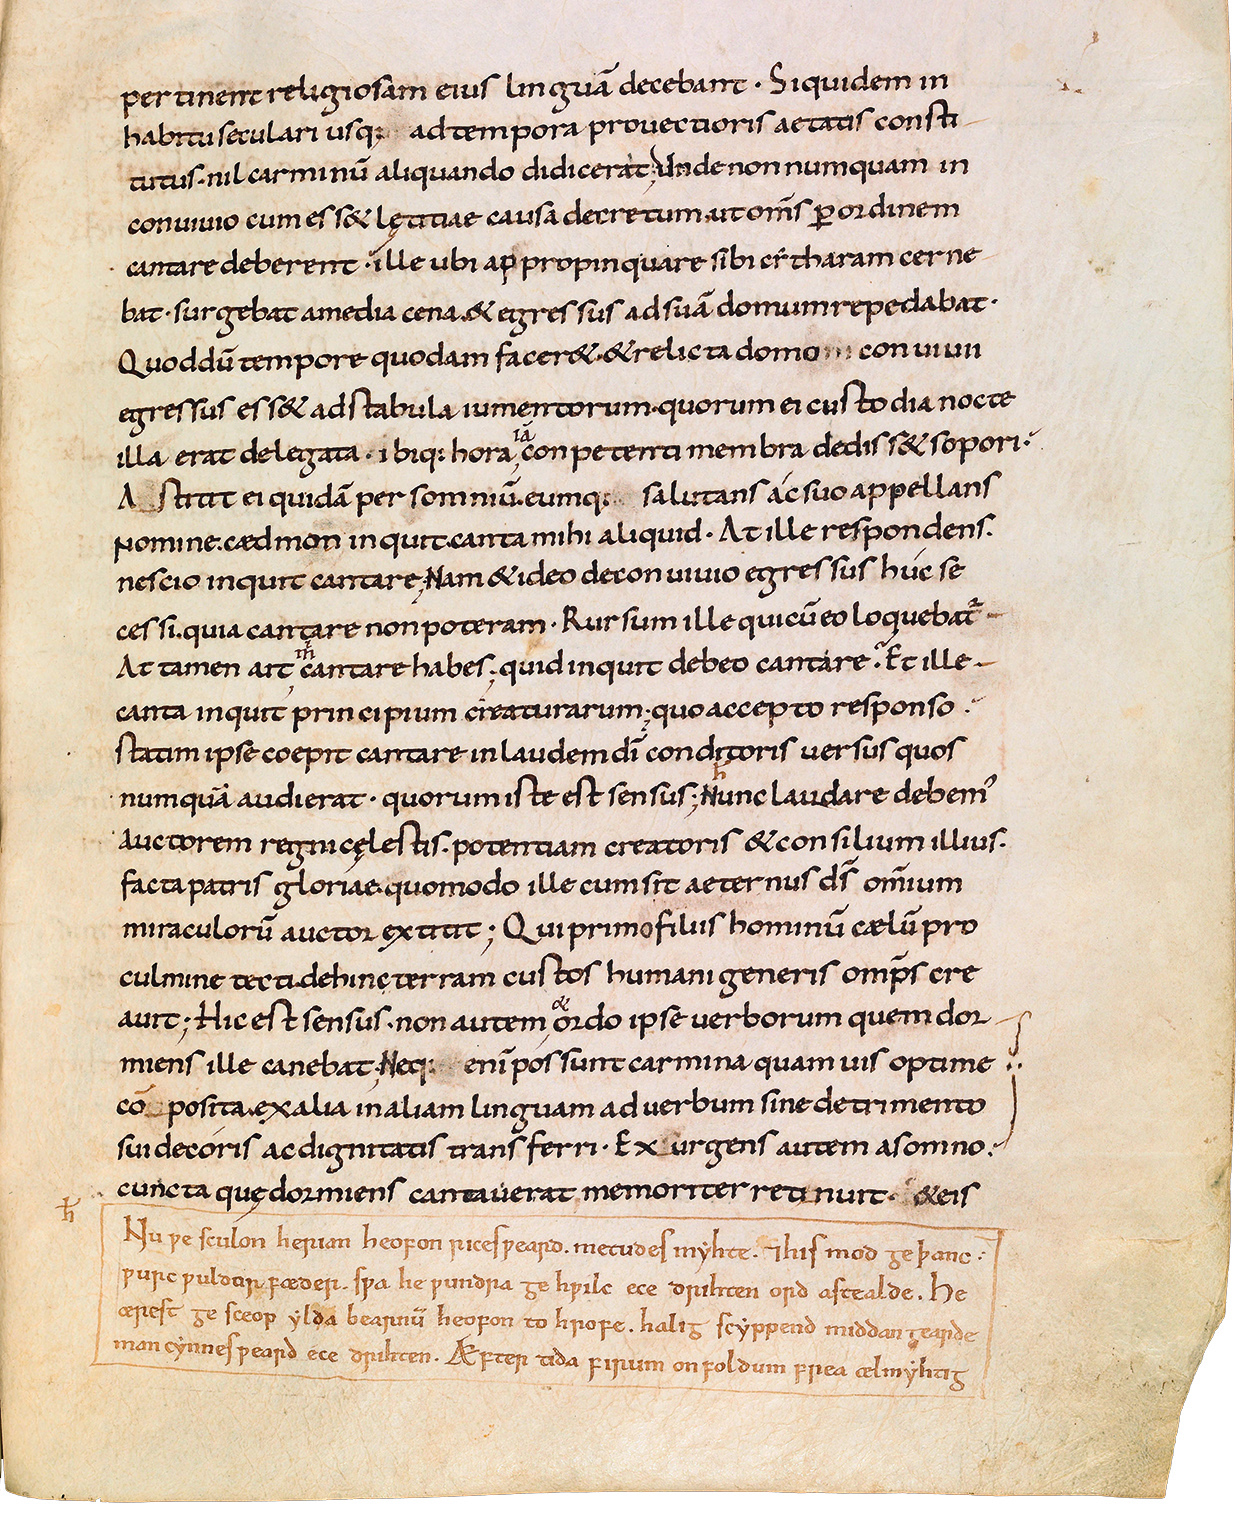 pertinent religiosam eius linguā decebant · Siquidem in
habitu seculari usq; ad tempora prouectioris aetatis consti
tutus · nil carminū aliquando didicerat; Unde non numquam in
conuiuio cum ess& lętitiae causa decretum · ut om̄s ꝑ ordinem
cantare deberent · ille ubi appropinquare sibi citharam cerne
bat · surgebat a media cena · & egressus ad suā domum repedabat ·
Quod dū tempore quodam facer& · & relicta domo conuiuii
egressus ess& ad stabula iumentorum · quorum ei custodia nocte
illa erat delegata · ibiq; hora iā conpetenti membra dediss& sopori ·
Astitit ei quidā per somniū · eumq; salutans ac suo appellans
nomine · cædmon inquit · canta mihi aliquid · At ille respondens ·
nescio inquit cantare; Nam & ideo de conuiuio egressus huc se
cessi · quia cantare non poteram · Rursum ille qui cū eo loquebat᷑
At tamen ait m̄ cantare habes; quid inquit debeo cantare · Et ille
canta inquit principium creaturarum; quo accepto responso ·
statim ipse coepit cantare in laudem dī conditoris uersus quos
numquā audierat · quorum iste est sensus; Nunc laudare debem᾽
auctorem regni cęlestis · potentiam creatoris & consilium illius ·
facta patris gloriae · quomodo ille cum sit aeternus ds̄ om̄ium
miraculorū auctor extitit; Qui primo filiis hominū cælū pro
culmine tecti · dehinc terram custos humani generis omp̄s cre
auit; Hic est sensus · non autem & ordo ipse uerborum quem dor
miens ille canebat; Neq; enī possunt carmina quamuis optime
cōposita · ex alia in aliam linguam ad uerbum sine detrimento
sui decoris ac dignitatis transferri · Exurgens autem a somno ·
cuncta quę dormiens cantauerat memoriter retinuit · & eis
ħ Nu ƿe sculon herian heofon rices ƿeard . metudes myhte . ⁊ his mod ge þanc :
ƿurc ƿuldor fæder . sƿa he ƿundra ge hƿilc ece drihten ord astealde . He
ærest ge sceop ylda bearnū heofon to hrofe . halig scyppend middan gearde
man cynnes ƿeard ece drihten . Æfter tida firum on foldum frea ælmyhtig